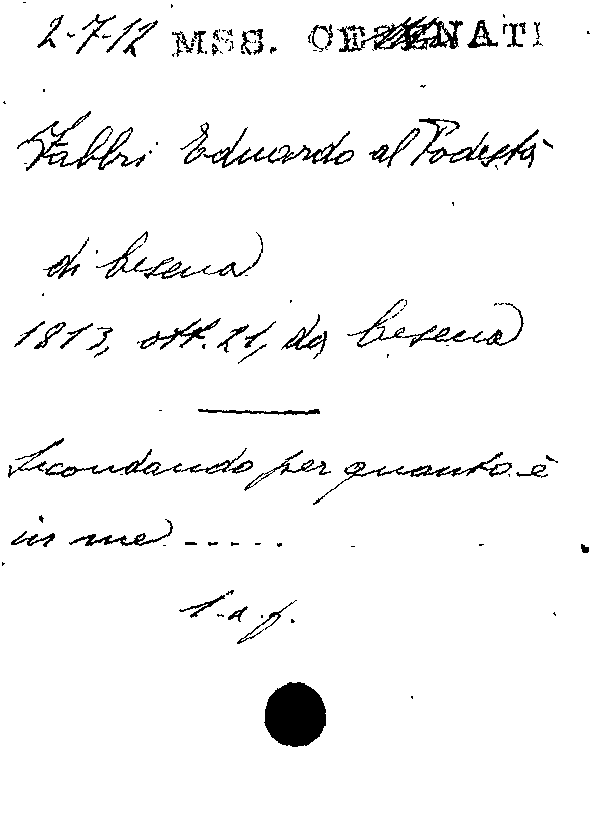 2-7-12 MSS. CESENATI
Fabbri Eduardo al Podestà
di Cesena
1813, ott. 21, da Cesena
Secondando per quanto è
in me -----
l. a. f.